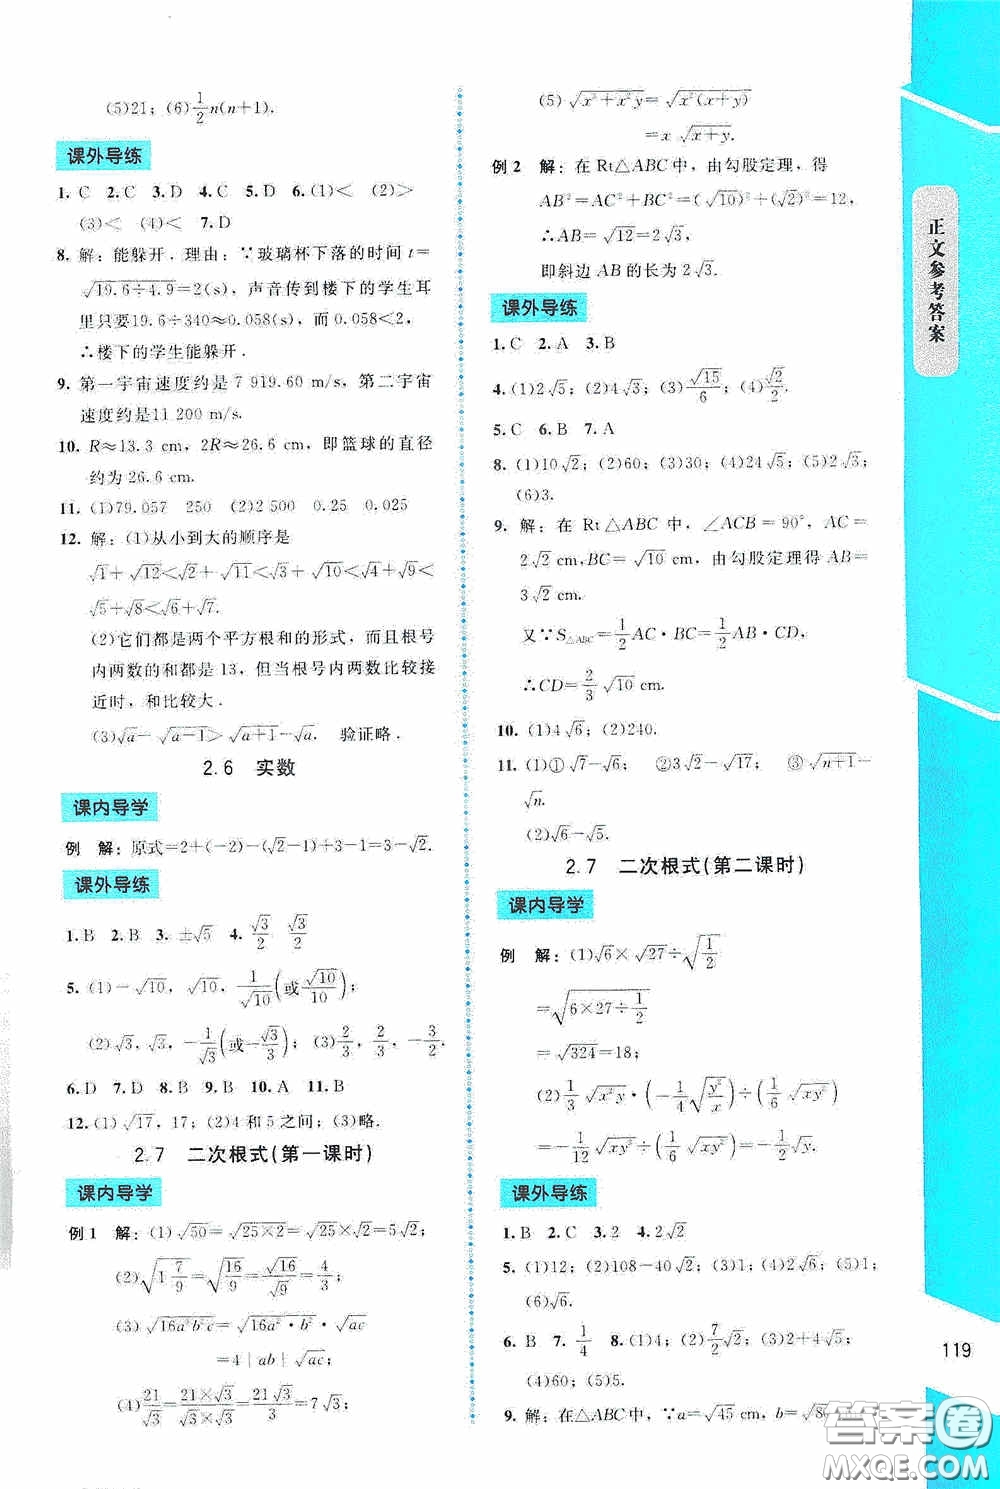 (5)21；(6)1/2n(n+1).
课外导练
1. C 2. C 3. D 4. C 5. D 6. (1)＜ (2)＞
(3)＜ (4)＜ 7. D
8. 解：能躲开．理由：∵玻璃杯下落的时间 t＝
√(19.6÷4.9)＝2(s)，声音传到楼下的学生耳
里只要19.6÷340≈0.058(s)，而 0.058＜2，
∴楼下的学生能躲开．
9. 第一宇宙速度约是 7 919.60 m/s，第二宇宙
速度约是11 200 m/s.
10. R≈13.3 cm，2R≈26.6 cm，即篮球的直径
约为 26.6 cm.
11. (1)79.057 250 (2)2 500 0.25 0.025
12. 解：(1)从小到大的顺序是
√1+√12＜√2+√11＜√3+√10＜√4+√9＜
√5+√8＜√6+√7.
(2)它们都是两个平方根和的形式，而且根号
内两数的和都是 13，但当根号内两数比较接
近时，和比较大．
(3)√a－√(a－1)＞√(a+1)－√a． 验证略．
2.6 实数
课内导学
例 解：原式＝2+(－2)－(√2－1)+3－1＝3－√2.
课外导练
1. B 2. B 3. ±√5 4. √3/2 √3/2
5. (1)－√10，√10，1/√10(或√10/10)；
(2)√3，√3，－1/√3(或－√3/3)；(3)2/3，2/3，－3/2.
6. D 7. D 8. B 9. B 10. A 11. B
12. (1)√17，17；(2)4 和 5 之间；(3)略.
2.7 二次根式(第一课时)
课内导学
例 1 解：(1)√50＝√(25×2)＝√25×√2＝5√2；
(2)√(1 7/9)＝√(16/9)＝√16/√9＝4/3；
(3)√(16a²b²c)＝√(16a²·b²)·√(ac)
＝4｜ab｜√(ac)；
(4)21/√3＝21×√3/√3×√3＝21√3/3＝7√3；
(5)√(x³+x²y)＝√(x²(x+y))
＝x√(x+y).
例 2 解：在 Rt△ABC 中，由勾股定理，得
AB²＝AC²+BC²＝(√10)²+(√2)²＝12，
∴AB＝√12＝2√3.
即斜边 AB 的长为 2√3.
课外导练
1. C 2. A 3. B
4. (1)2√5；(2)4√3；(3)√15/6；(4)√2/2.
5. C 6. B 7. A
8. (1)10√2；(2)60；(3)30；(4)24√5；(5)2√3；
(6)3.
9. 解：在 Rt△ABC 中，∠ACB＝90°，AC＝
2√2 cm，BC＝√10 cm，由勾股定理得 AB＝
3√2 cm.
又∵S△ABC＝1/2AC·BC＝1/2AB·CD，
∴CD＝2/3√10 cm.
10. (1)4√6；(2)240.
11. (1)①√7－√6； ②√8－√7； ③√(n+1)－
√n.
(2)√6－√5.
2.7 二次根式(第二课时)
课内导学
例 解：(1)√6×√27÷√(1/2)
＝√(6×27÷1/2)
＝√324＝18；
(2)1/3√(x²y)·(－1/4√(y²/x))·(1/6√(xy²))
＝－1/12√(xy³)·(1/6√(xy²))
课外导练
1. B 2. C 3. 2 4. 2√2
5. (1)12；(2)108－40√2；(3)1；(4)2√6；(5)1；
(6)√6.
6. B 7. 1/4 8. (1)4；(2)7/2√2；(3)2+4√5；
(4)60；(5)5.
9. 解：在△ABC 中，∵a＝√45 cm，b＝
正文参考答案
119
答案卷
MXQE.COM